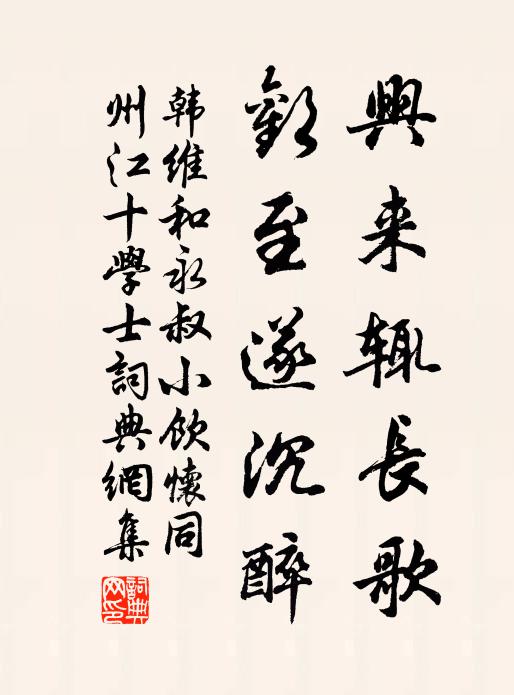 興来輒長歌
歡至遂沉醉
韩維和永叔小飲懷同
州江十學士詞典網集
詞典网印